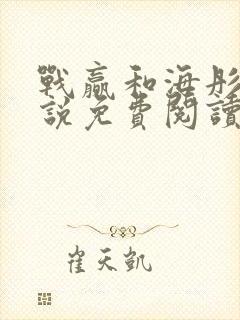 戰贏和海彤
說免費閱讀
崔天凱